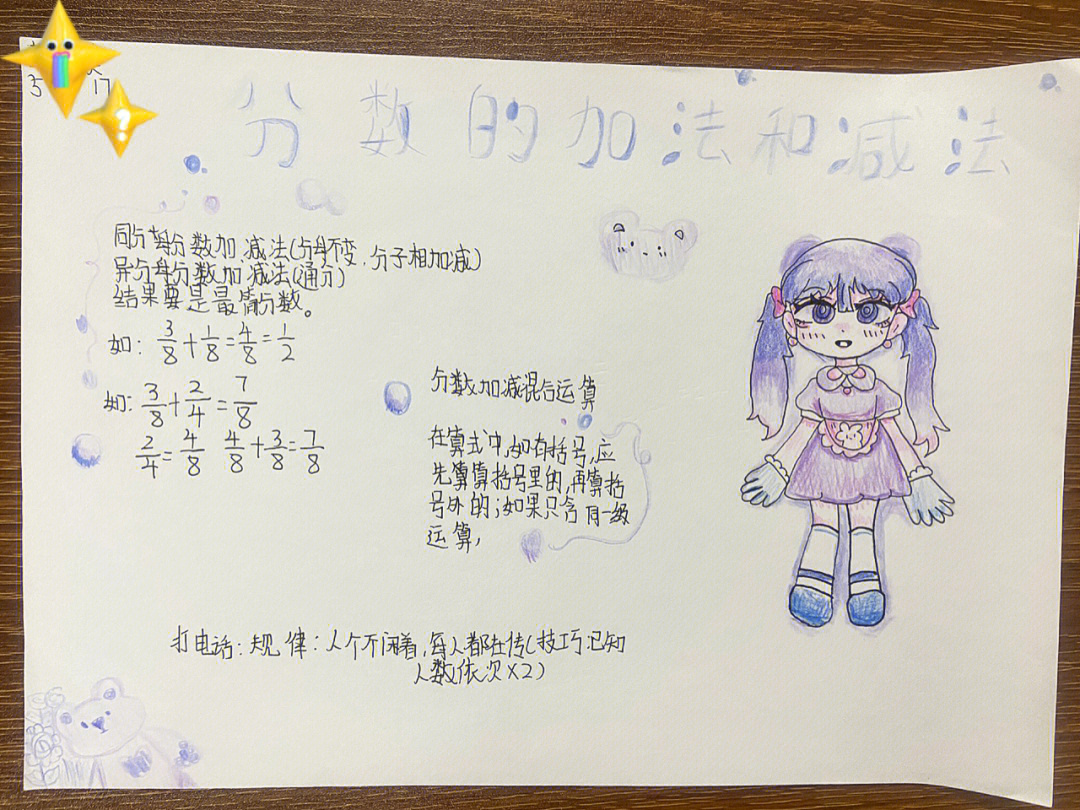 分数的加法和减法
同分母分数加减法(分母不变.分子相加减)
异分母分数加减法(通分)
结果要是最简分数。
如: 3/8+1/8=4/8=1/2
如: 3/8+2/4=7/8
2/4=4/8 4/8+3/8=7/8
分数加减混合运算
在算式中,如有括号,应
先算算括号里的,再算括
号外的;如果只含同一级
运算,
打电话:规律:人个不闲着,每人都在传(技巧:已知
人数依次×2)
17